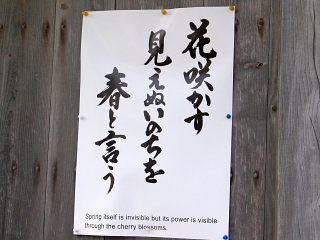 花咲かす
見えぬいのちを
春と言う
Spring itself is invisible but its power is visible
through the cherry blossoms.